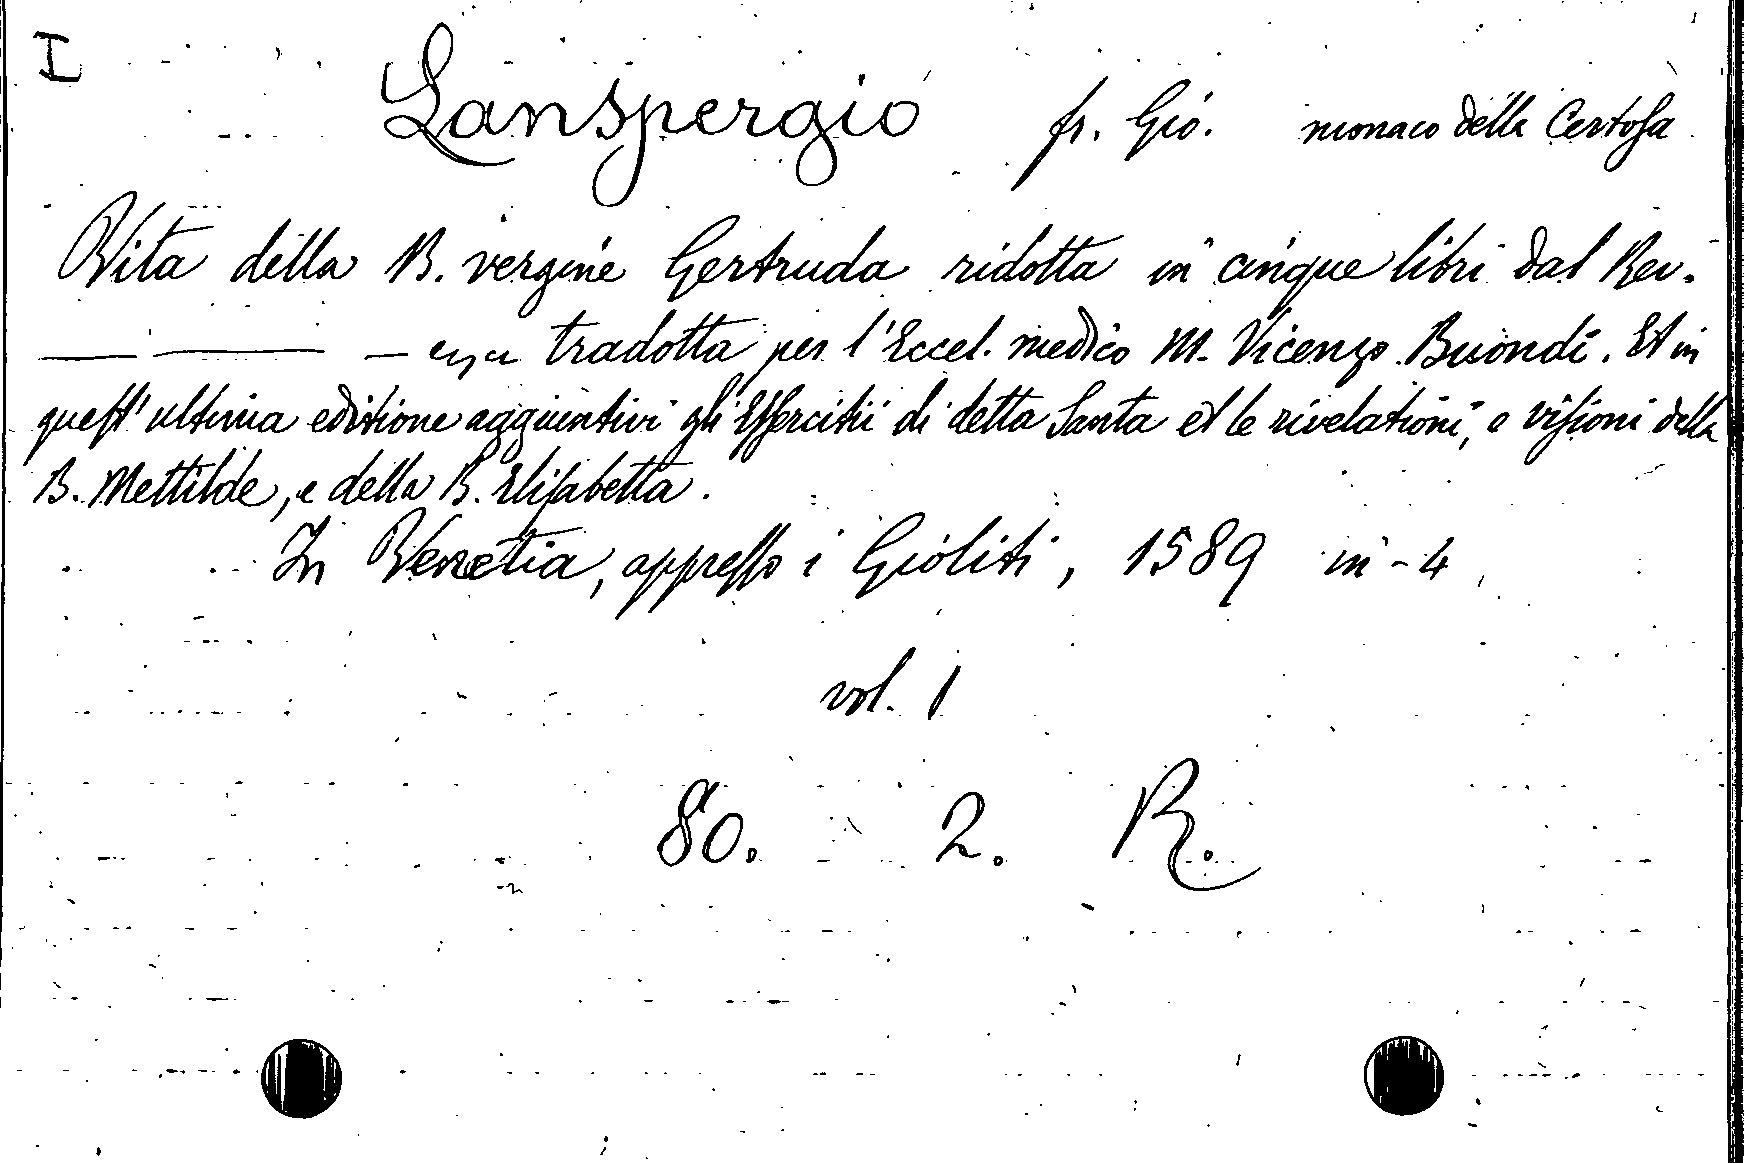 I
Lanspergio fr. Gio. monaco della Certosa
Vita della B. vergine Gertruda ridotta in cinque libri dal Rev.
—— —— — tradotta per l'Eccel. medico M. Vicenzo Buondi. Et in
quest' ultima editione aggiuntivi gli Essercitii di detta Santa et le rivelationi, e visioni della
B. Mettilde, e della B. Elisabetta.
In Venetia, appresso i Gioliti, 1589 in-4
vol. 1
80. 2. R.